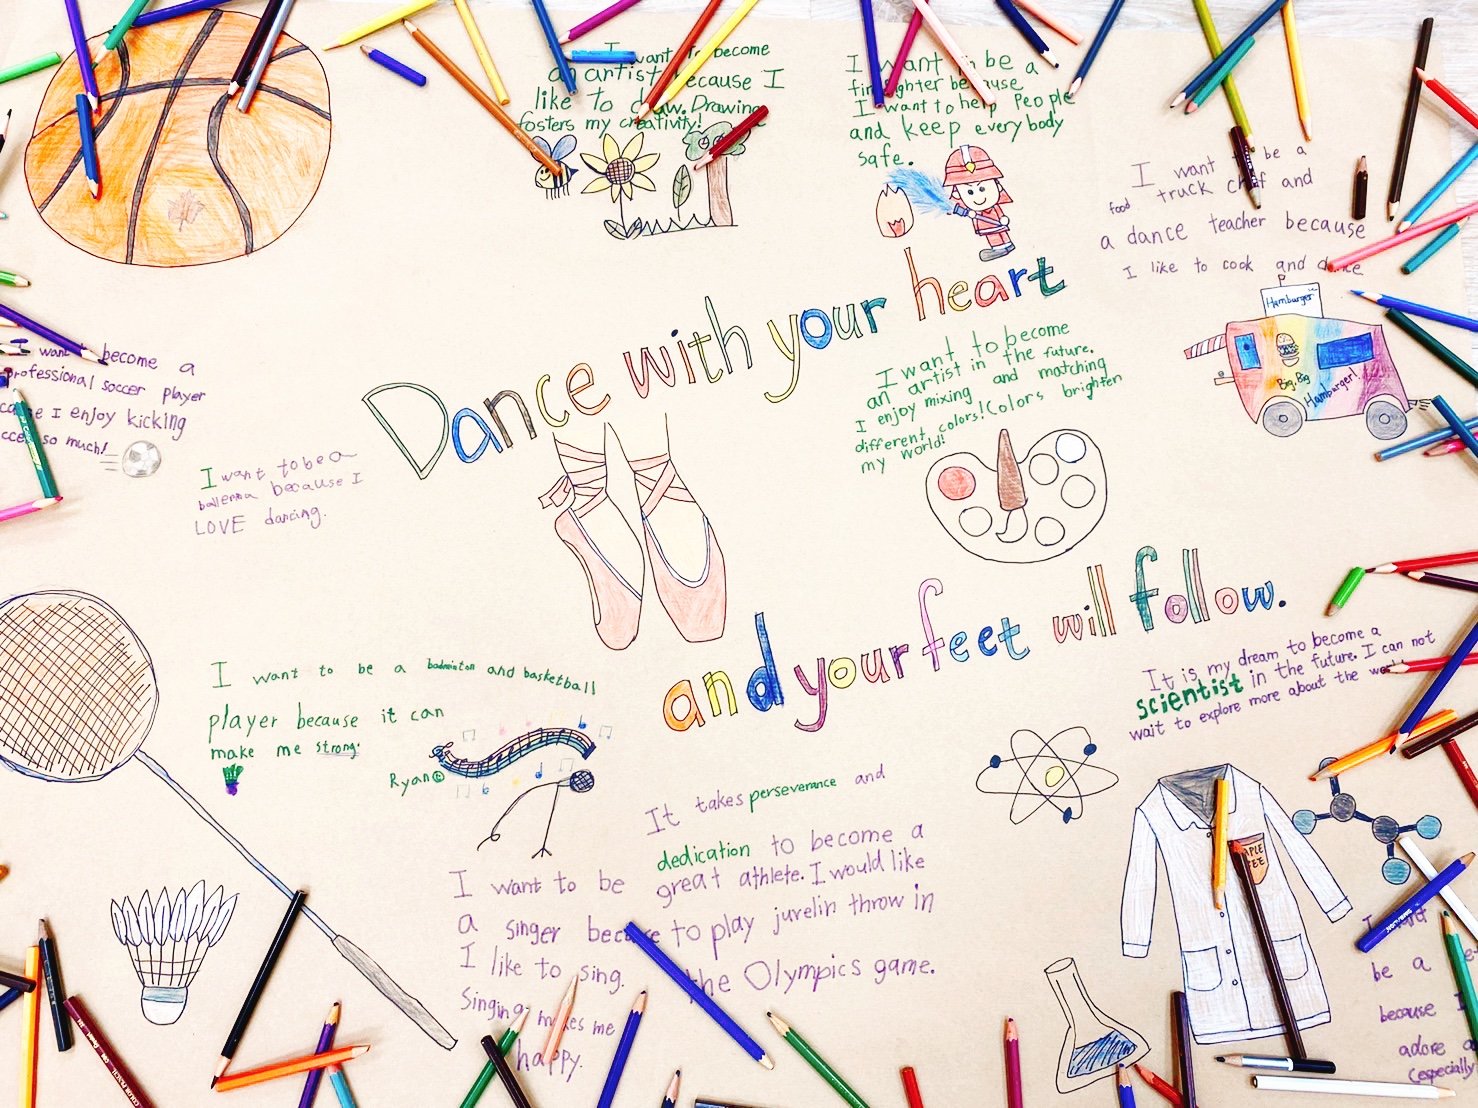 I want to become
an artist because I
like to draw. Drawing
fosters my creativity!
I want to be a
firefighter because
I want to help People
and keep everybody
safe.
I want to be a
food truck chef and
a dance teacher because
I like to cook and dance
Hamburger
Big, Big
Hamburger!
Dance with your heart
I want to become
an artist in the future.
I enjoy mixing and matching
different colors! Colors brighten
my world!
I want to become a
professional soccer player
I enjoy kicking
so much!
I want to be a
ballerina because I
LOVE dancing.
and your feet will follow.
I want to be a badminton and basketball
player because it can
make me strong.
Ryan
It is my dream to become a
scientist in the future. I can not
wait to explore more about the
It takes perseverance and
dedication to become a
great athlete. I would like
to play juvelin throw in
the Olympics game.
I want to be
a singer because
I like to sing.
Singing makes me
happy.
I want
be a
because I
adore
(especially